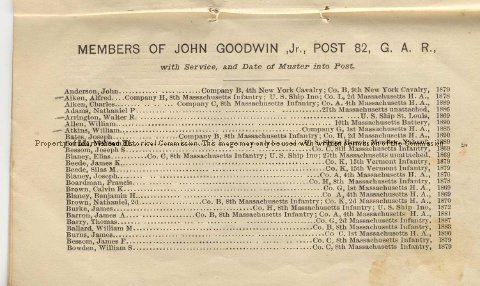 MEMBERS OF JOHN GOODWIN, Jr., POST 82, G. A. R.,
with Service, and Date of Muster into Post.
Anderson, John Company B, 4th New York Cavalry; Co. B, 9th New York Cavalry, 1879
Aiken, Alfred Company H, 8th Massachusetts Infantry; U. S. Ship Ino; Co. L, 2d Massachusetts H. A., 1878
Aiken, Charles Company C, 8th Massachusetts Infantry; Co. A, 4th Massachusetts H. A., 1889
Adams, Nathaniel P 27th Massachusetts unattached, 1886
Arrington, Walter R U. S. Ship St. Louis, 1869
Allen, William 16th Massachusetts Battery, 1880
Atkins, William Company G, 1st Massachusetts H. A., 1885
Bates, Joseph Company B, 8th Massachusetts Infantry; Co. H, 2d Massachusetts H. A., 1880
Property of the Historical Commission. This image may only be used with written permission of the Commission
Bessom, Joseph S Co. C, 8th Massachusetts Infantry, 1869
Blaney, Elias Co. C, 8th Massachusetts Infantry; U. S. Ship Ino; 27th Massachusetts unattached, 1869
Beede, James K Co. K, 15th Vermont Infantry, 1879
Beede, Silas M Co. K, 15th Vermont Infantry, 1869
Blaney, Joseph Co. A, 4th Massachusetts H. A., 1870
Boardman, Francis Co. H, 8th Massachusetts Infantry, 1878
Brown, Calvin K Co. G, 1st Massachusetts H. A., 1869
Blaney, Benjamin H Co. A, 4th Massachusetts H. A., 1869
Brown, Nathaniel, 2d Co. B, 8th Massachusetts Infantry; Co. K, 2d Massachusetts H. A., 1870
Burke, James Co. H, 8th Massachusetts Infantry; U. S. Ship Ino, 1872
Barron, James A Co. B, 8th Massachusetts Infantry; Co. A, 4th Massachusetts H. A., 1881
Barry, Thomas Co. G, 2d Massachusetts Infantry, 1887
Ballard, William M Co. B, 8th Massachusetts Infantry, 1883
Burns, James Co. C, 1st Massachusetts H. A., 1890
Bessom, James F Co. C, 8th Massachusetts Infantry, 1879
Bowden, William S Co. C, 8th Massachusetts Infantry, 1879